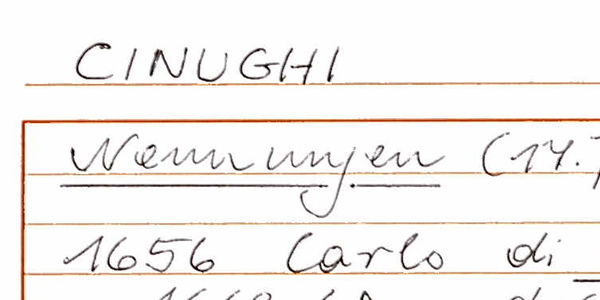 CINUGHI
Nennungen (14.)
1656 Carlo di